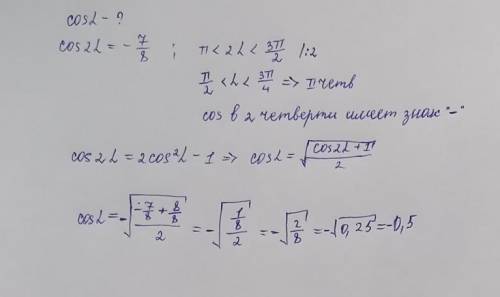 cosL - ?
cos2L = - 7/8 ; π < 2L < 3π/2 /:2
π/2 < L < 3π/4 => II четв
cos в 2 четверти имеет знак "-"
cos2L = 2cos²L - 1 => cosL = √(cos2L + 1)/2
cosL = -√((-7/8 + 8/8)/2) = -√((1/8)/2) = -√(2/8) = -√0,25 = -0,5